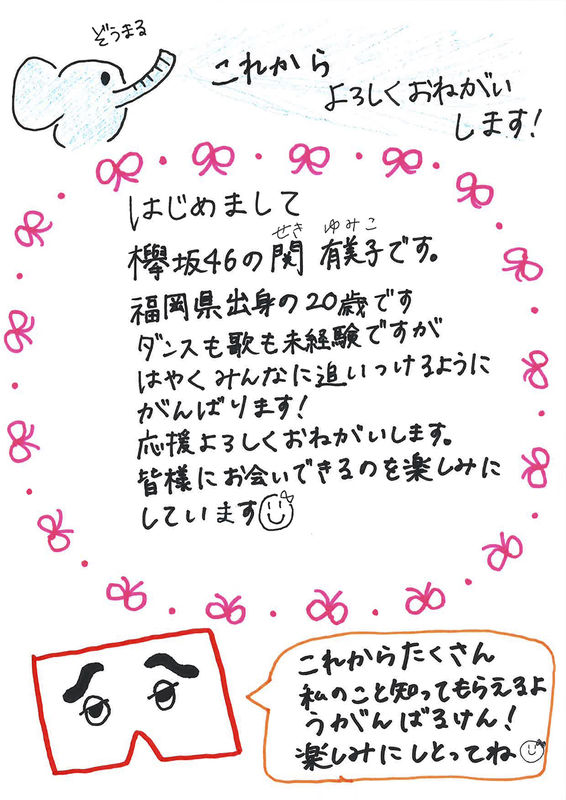 ぞうまる
これから
よろしくおねがい
します！
はじめまして
せき ゆみこ
欅坂46の関 有美子です。
福岡県出身の20歳です
ダンスも歌も未経験ですが
はやくみんなに追いつけるように
がんばります！
応援よろしくおねがいします。
皆様にお会いできるのを楽しみに
しています
これからたくさん
私のこと知ってもらえるよ
うがんばるけん！
楽しみにしとってね